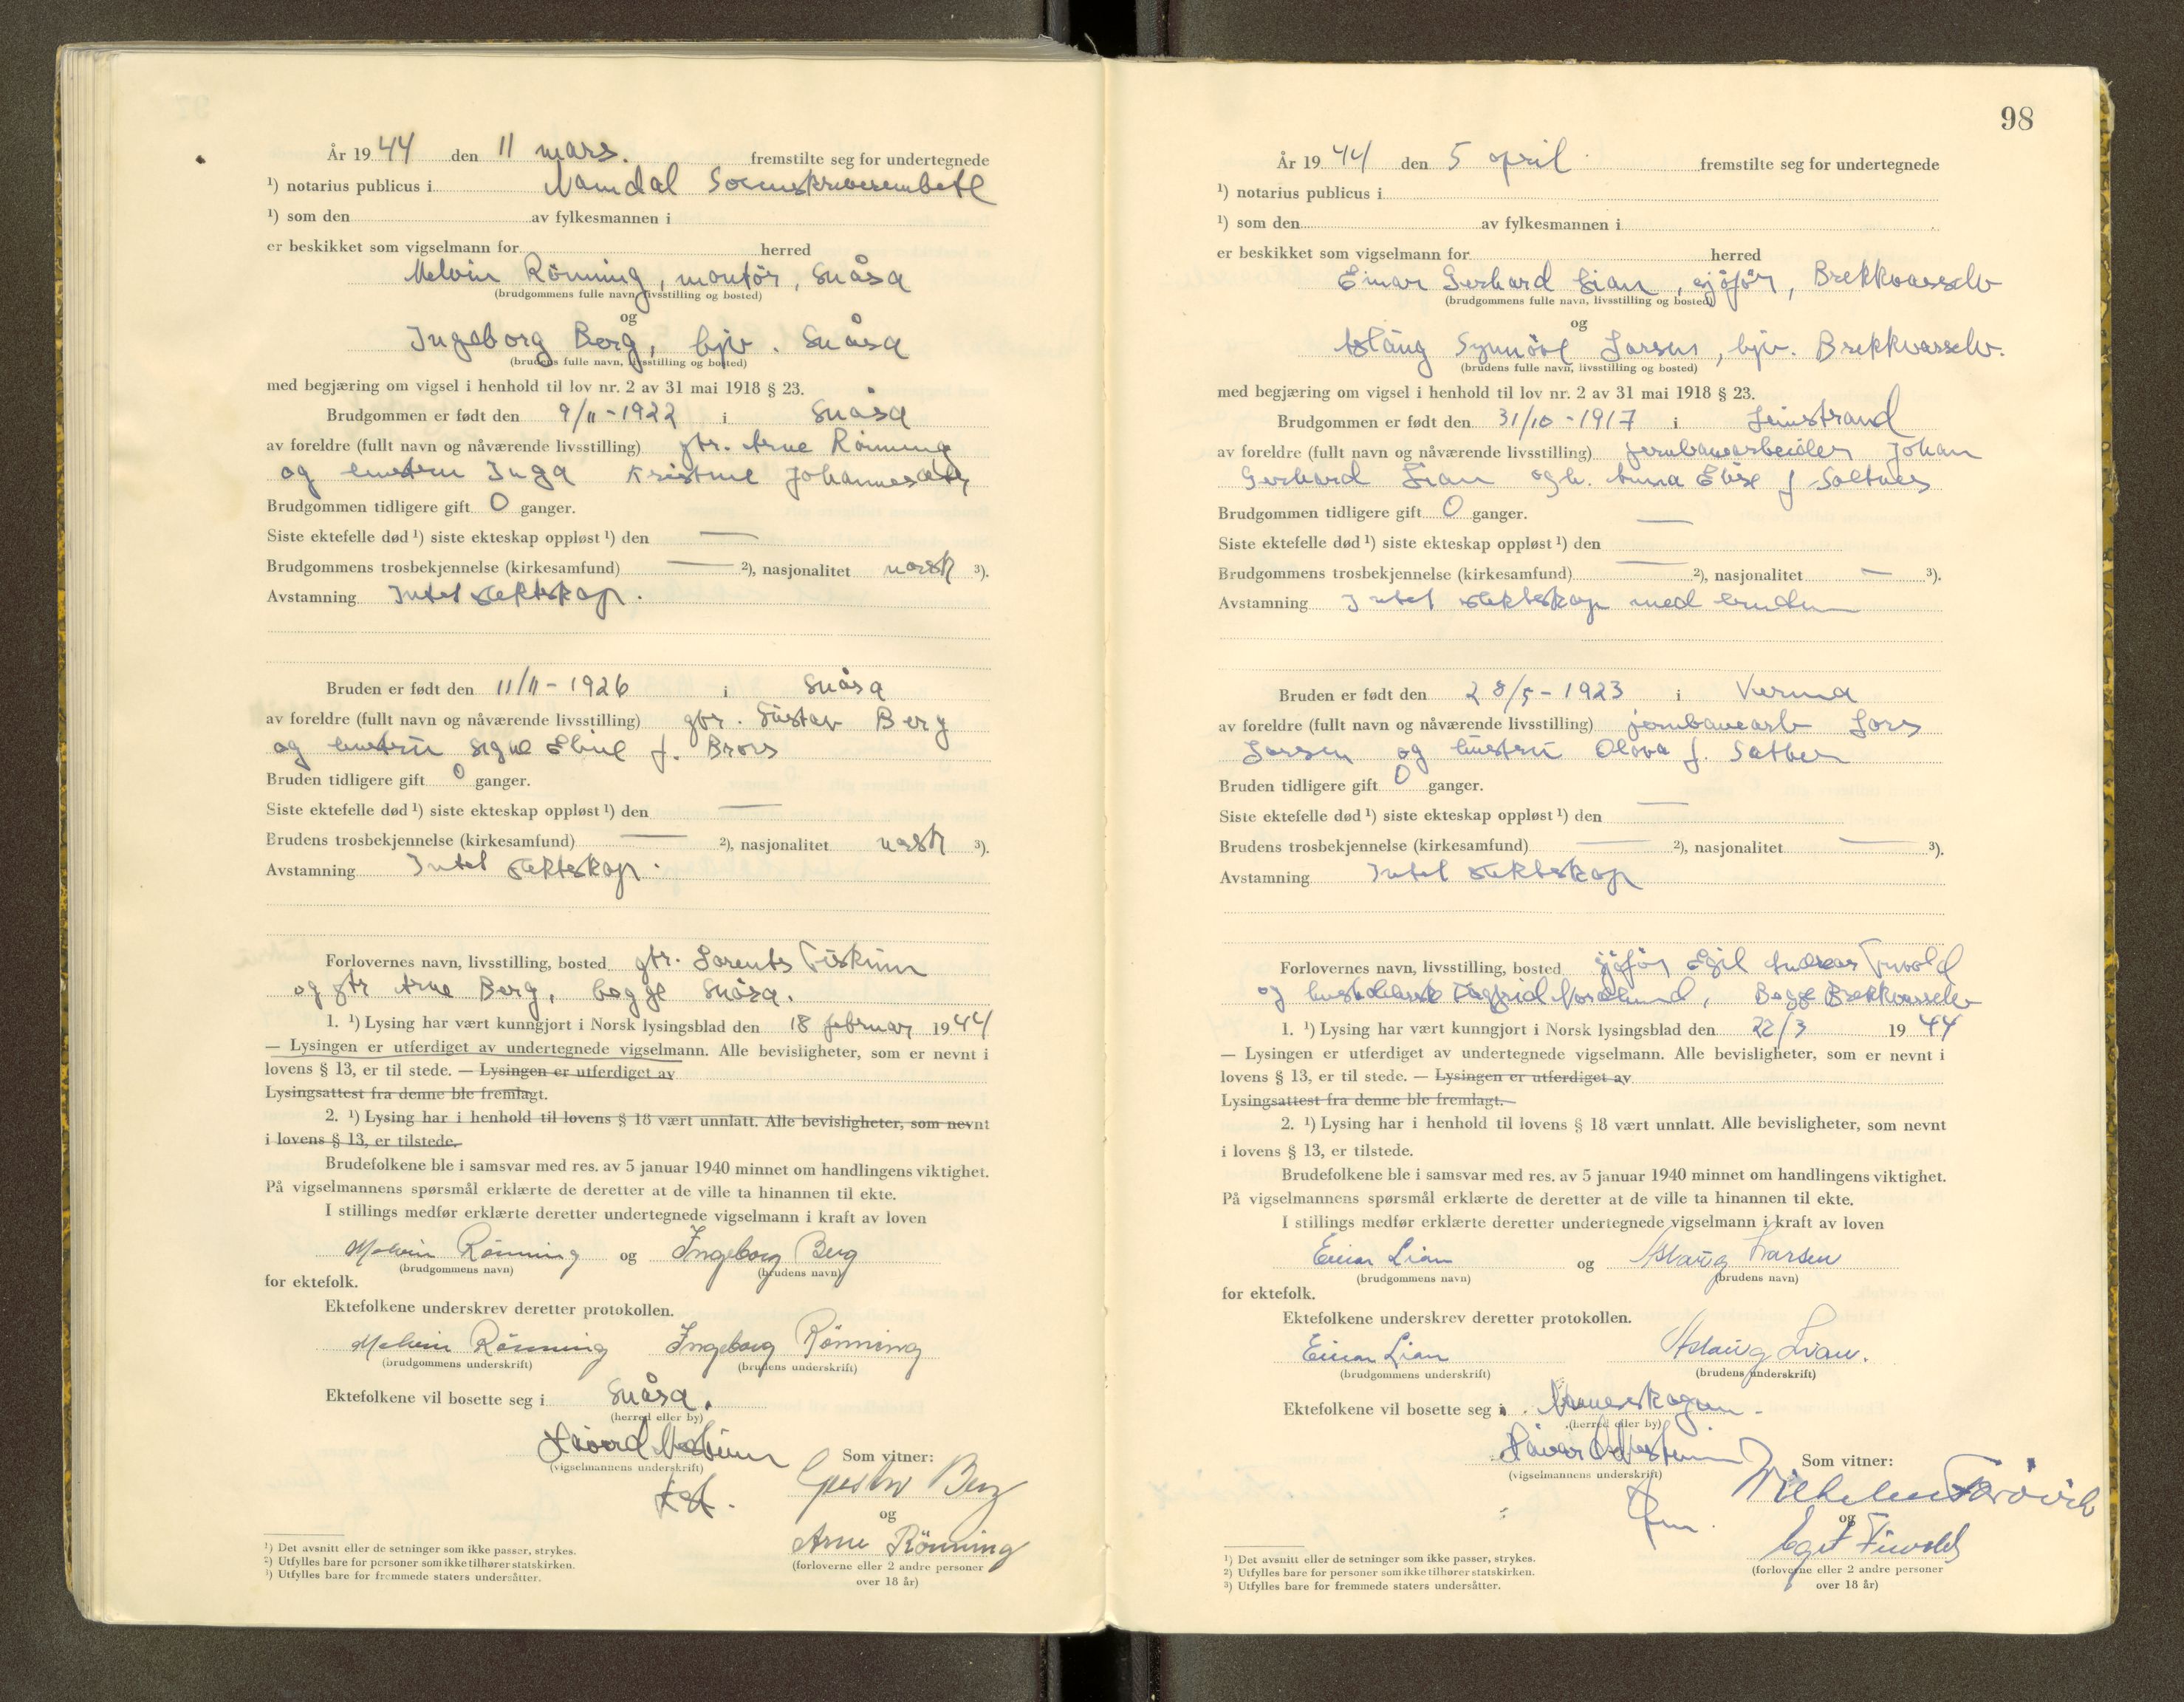 År 1944 den 11 mars. fremstilte seg for undertegnede
¹) notarius publicus i Namdal Sorenskriverembete
¹) som den av fylkesmannen i
er beskikket som vigselmann for herred
Melvin Rönning, montör, Snåsa
(brudgommens fulle navn, livsstilling og bosted)
og
Ingeborg Berg, hjv. Snåsa
(brudens fulle navn, livsstilling og bosted)
med begjæring om vigsel i henhold til lov nr. 2 av 31 mai 1918 § 23.
Brudgommen er født den 9/11-1922 i Snåsa
av foreldre (fullt navn og nåværende livsstilling) gbr. Arne Rönning
og hustru Inga Kristine Johannesdtr
Brudgommen tidligere gift 0 ganger.
Siste ektefelle død ¹) siste ekteskap oppløst ¹) den —
Brudgommens trosbekjennelse (kirkesamfund) — ²), nasjonalitet norsk ³).
Avstamning Intet slektskap.
Bruden er født den 11/11-1926 i Snåsa
av foreldre (fullt navn og nåværende livsstilling) gbr. Gustav Berg
og hustru Signe Eline f. Brors
Bruden tidligere gift 0 ganger.
Siste ektefelle død ¹) siste ekteskap oppløst ¹) den —
Brudens trosbekjennelse (kirkesamfund) — ²), nasjonalitet norsk ³).
Avstamning Intet slektskap.
Forlovernes navn, livsstilling, bosted gbr. Lorents Fiskum
og gbr Arne Berg, begge Snåsa.
1. ¹) Lysing har vært kunngjort i Norsk lysingsblad den 18 februar 1944
— Lysingen er utferdiget av undertegnede vigselmann. Alle bevisligheter, som er nevnt i
lovens § 13, er til stede. — Lysingen er utferdiget av
Lysingsattest fra denne ble fremlagt.
2. ¹) Lysing har i henhold til lovens § 18 vært unnlatt. Alle bevisligheter, som nevnt
i lovens § 13, er tilstede.
Brudefolkene ble i samsvar med res. av 5 januar 1940 minnet om handlingens viktighet.
På vigselmannens spørsmål erklærte de deretter at de ville ta hinannen til ekte.
I stillings medfør erklærte deretter undertegnede vigselmann i kraft av loven
Melvin Rönning og Ingeborg Berg
(brudgommens navn) (brudens navn)
for ektefolk.
Ektefolkene underskrev deretter protokollen.
Melvin Rönning Ingeborg Rönning
(brudgommens underskrift) (brudens underskrift)
Ektefolkene vil bosette seg i Snåsa.
(herred eller by)
Håvard
(vigselmannens underskrift)
Som vitner:
Gustav Berg
og
Arne Rönning
(forloverne eller 2 andre personer
over 18 år)
¹) Det avsnitt eller de setninger som ikke passer, strykes.
²) Utfylles bare for personer som ikke tilhører statskirken.
³) Utfylles bare for fremmede staters undersåtter.
98
År 1944 den 5 april. fremstilte seg for undertegnede
¹) notarius publicus i
¹) som den av fylkesmannen i
er beskikket som vigselmann for herred
Einar Gerhard Lian, sjåför, Brekkvasselv
(brudgommens fulle navn, livsstilling og bosted)
og
Aslaug Synnöve Larsen, hjv. Brekkvasselv.
(brudens fulle navn, livsstilling og bosted)
med begjæring om vigsel i henhold til lov nr. 2 av 31 mai 1918 § 23.
Brudgommen er født den 31/10-1917 i Leinstrand
av foreldre (fullt navn og nåværende livsstilling) jernbanearbeider Johan
Gerhard Lian og h. Anna Elise f Saltnes
Brudgommen tidligere gift 0 ganger.
Siste ektefelle død ¹) siste ekteskap oppløst ¹) den —
Brudgommens trosbekjennelse (kirkesamfund) — ²), nasjonalitet — ³).
Avstamning Intet slektskap med bruden
Bruden er født den 28/5-1923 i Verma
av foreldre (fullt navn og nåværende livsstilling) jernbanearb Lars
Larsen og hustru Olava f. Sæther
Bruden tidligere gift 0 ganger.
Siste ektefelle død ¹) siste ekteskap oppløst ¹) den —
Brudens trosbekjennelse (kirkesamfund) — ²), nasjonalitet — ³).
Avstamning Intet slektskap
Forlovernes navn, livsstilling, bosted sjåför Egil Andreas Finvold
og Nordlund, Begge Brekkvasselv
1. ¹) Lysing har vært kunngjort i Norsk lysingsblad den 22/3 1944
— Lysingen er utferdiget av undertegnede vigselmann. Alle bevisligheter, som er nevnt i
lovens § 13, er til stede. — Lysingen er utferdiget av
Lysingsattest fra denne ble fremlagt.
2. ¹) Lysing har i henhold til lovens § 18 vært unnlatt. Alle bevisligheter, som nevnt
i lovens § 13, er tilstede.
Brudefolkene ble i samsvar med res. av 5 januar 1940 minnet om handlingens viktighet.
På vigselmannens spørsmål erklærte de deretter at de ville ta hinannen til ekte.
I stillings medfør erklærte deretter undertegnede vigselmann i kraft av loven
Einar Lian og Aslaug Larsen
(brudgommens navn) (brudens navn)
for ektefolk.
Ektefolkene underskrev deretter protokollen.
Einar Lian Aslaug Lian.
(brudgommens underskrift) (brudens underskrift)
Ektefolkene vil bosette seg i Namsskogan.
(herred eller by)
Håvard
(vigselmannens underskrift)
Som vitner:
Wilhelm
og
Egil Finvold
(forloverne eller 2 andre personer
over 18 år)
¹) Det avsnitt eller de setninger som ikke passer, strykes.
²) Utfylles bare for personer som ikke tilhører statskirken.
³) Utfylles bare for fremmede staters undersåtter.